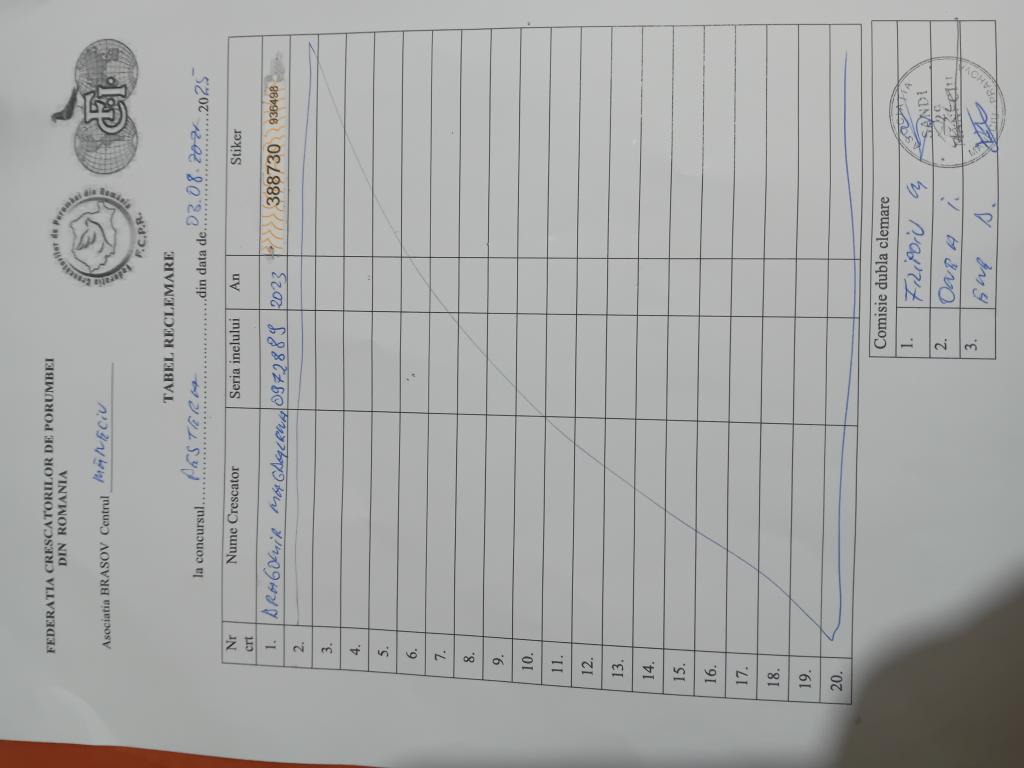 FEDERATIA CRESCATORILOR DE PORUMBEI
DIN ROMANIA
Asociatia BRASOV Centrul MĂNECIU
Federatia Crescatorilor de Porumbei din România
F.C.P.R.
TABEL RECLEMARE
la concursul PESTERA din data de 03.08. 2025
Nr crt Nume Crescator Seria inelului An Stiker
1. DRAGOMIR 0972889 2023 388730 936498
2.
3.
4.
5.
6.
7.
8.
9.
10.
11.
12.
13.
14.
15.
16.
17.
18.
19.
20.
Comisie dubla clemare
1. FILIPOIU
2.
3.